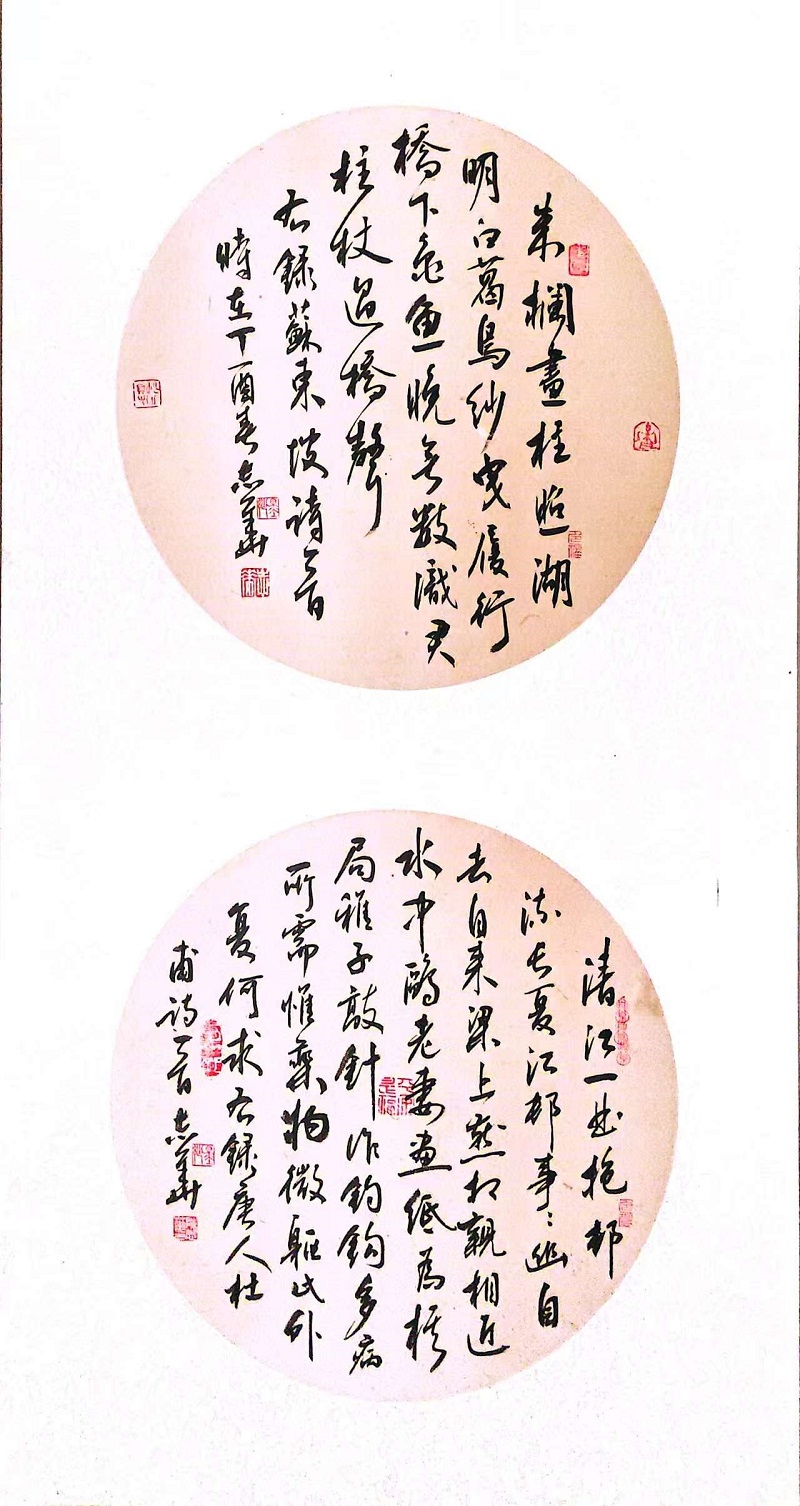 朱欄畫柱照湖
明白葛烏紗曳履行
橋下龜魚晚无數識君
柱杖過橋聲
右録蘇東坡詩一首
時在丁酉春志華
清江一曲抱邨
流長夏江邨事〻幽自
去自来梁上燕相親相近
水中鷗老妻画紙為棋
局稚子敲針作釣鈎多病
所需惟藥物微軀此外
更何求右録唐人杜
甫詩一首志華